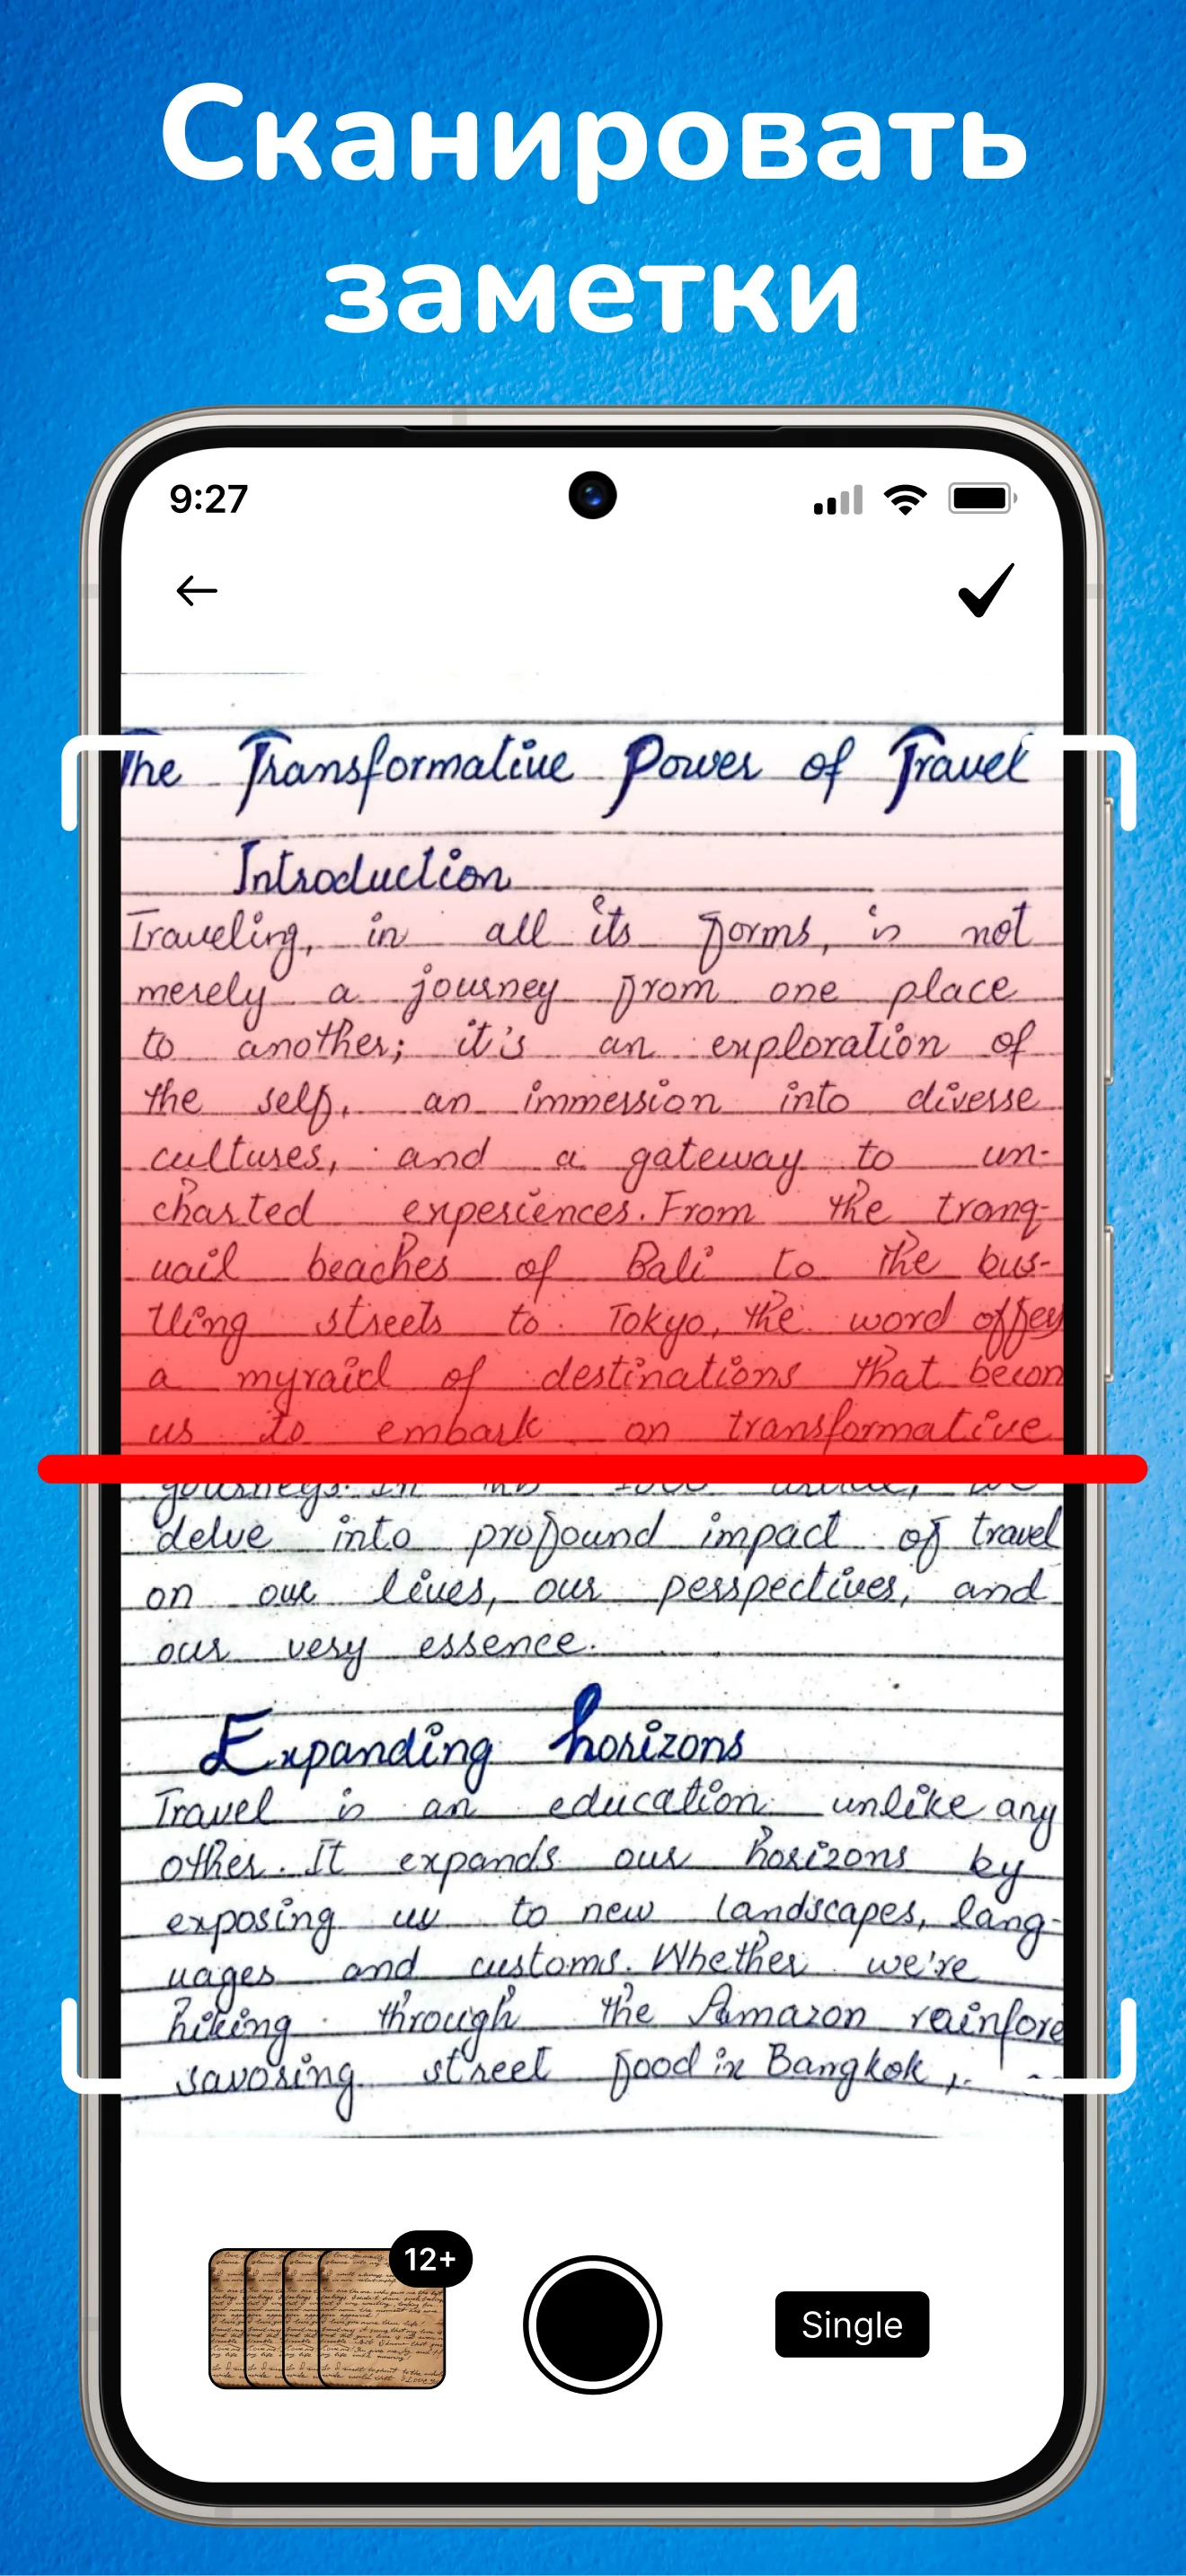 Сканировать
заметки
9:27
The Transformative Power of Travel
Introduction
Traveling, in all its forms, is not
merely a journey from one place
to another; it's an exploration of
the self, an immession into diverse
cultures, and a gateway to un-
charted experiences. From the tranq-
uail beaches of Bali to the bus-
tling streets to Tokyo, the word offers
a myraid of destinations that becon
us to embark on transformative
journeys. In this 1000
delve into profound impact of travel
on our lives, our perspectives, and
our very essence.
Expanding horizons
Travel is an education unlike any
other. It expands our horizons by
exposing us to new landscapes, lang-
uages and customs. Whether we're
hiking through the Amazon rainfore
savoring street food in Bangkok,
12+
Single